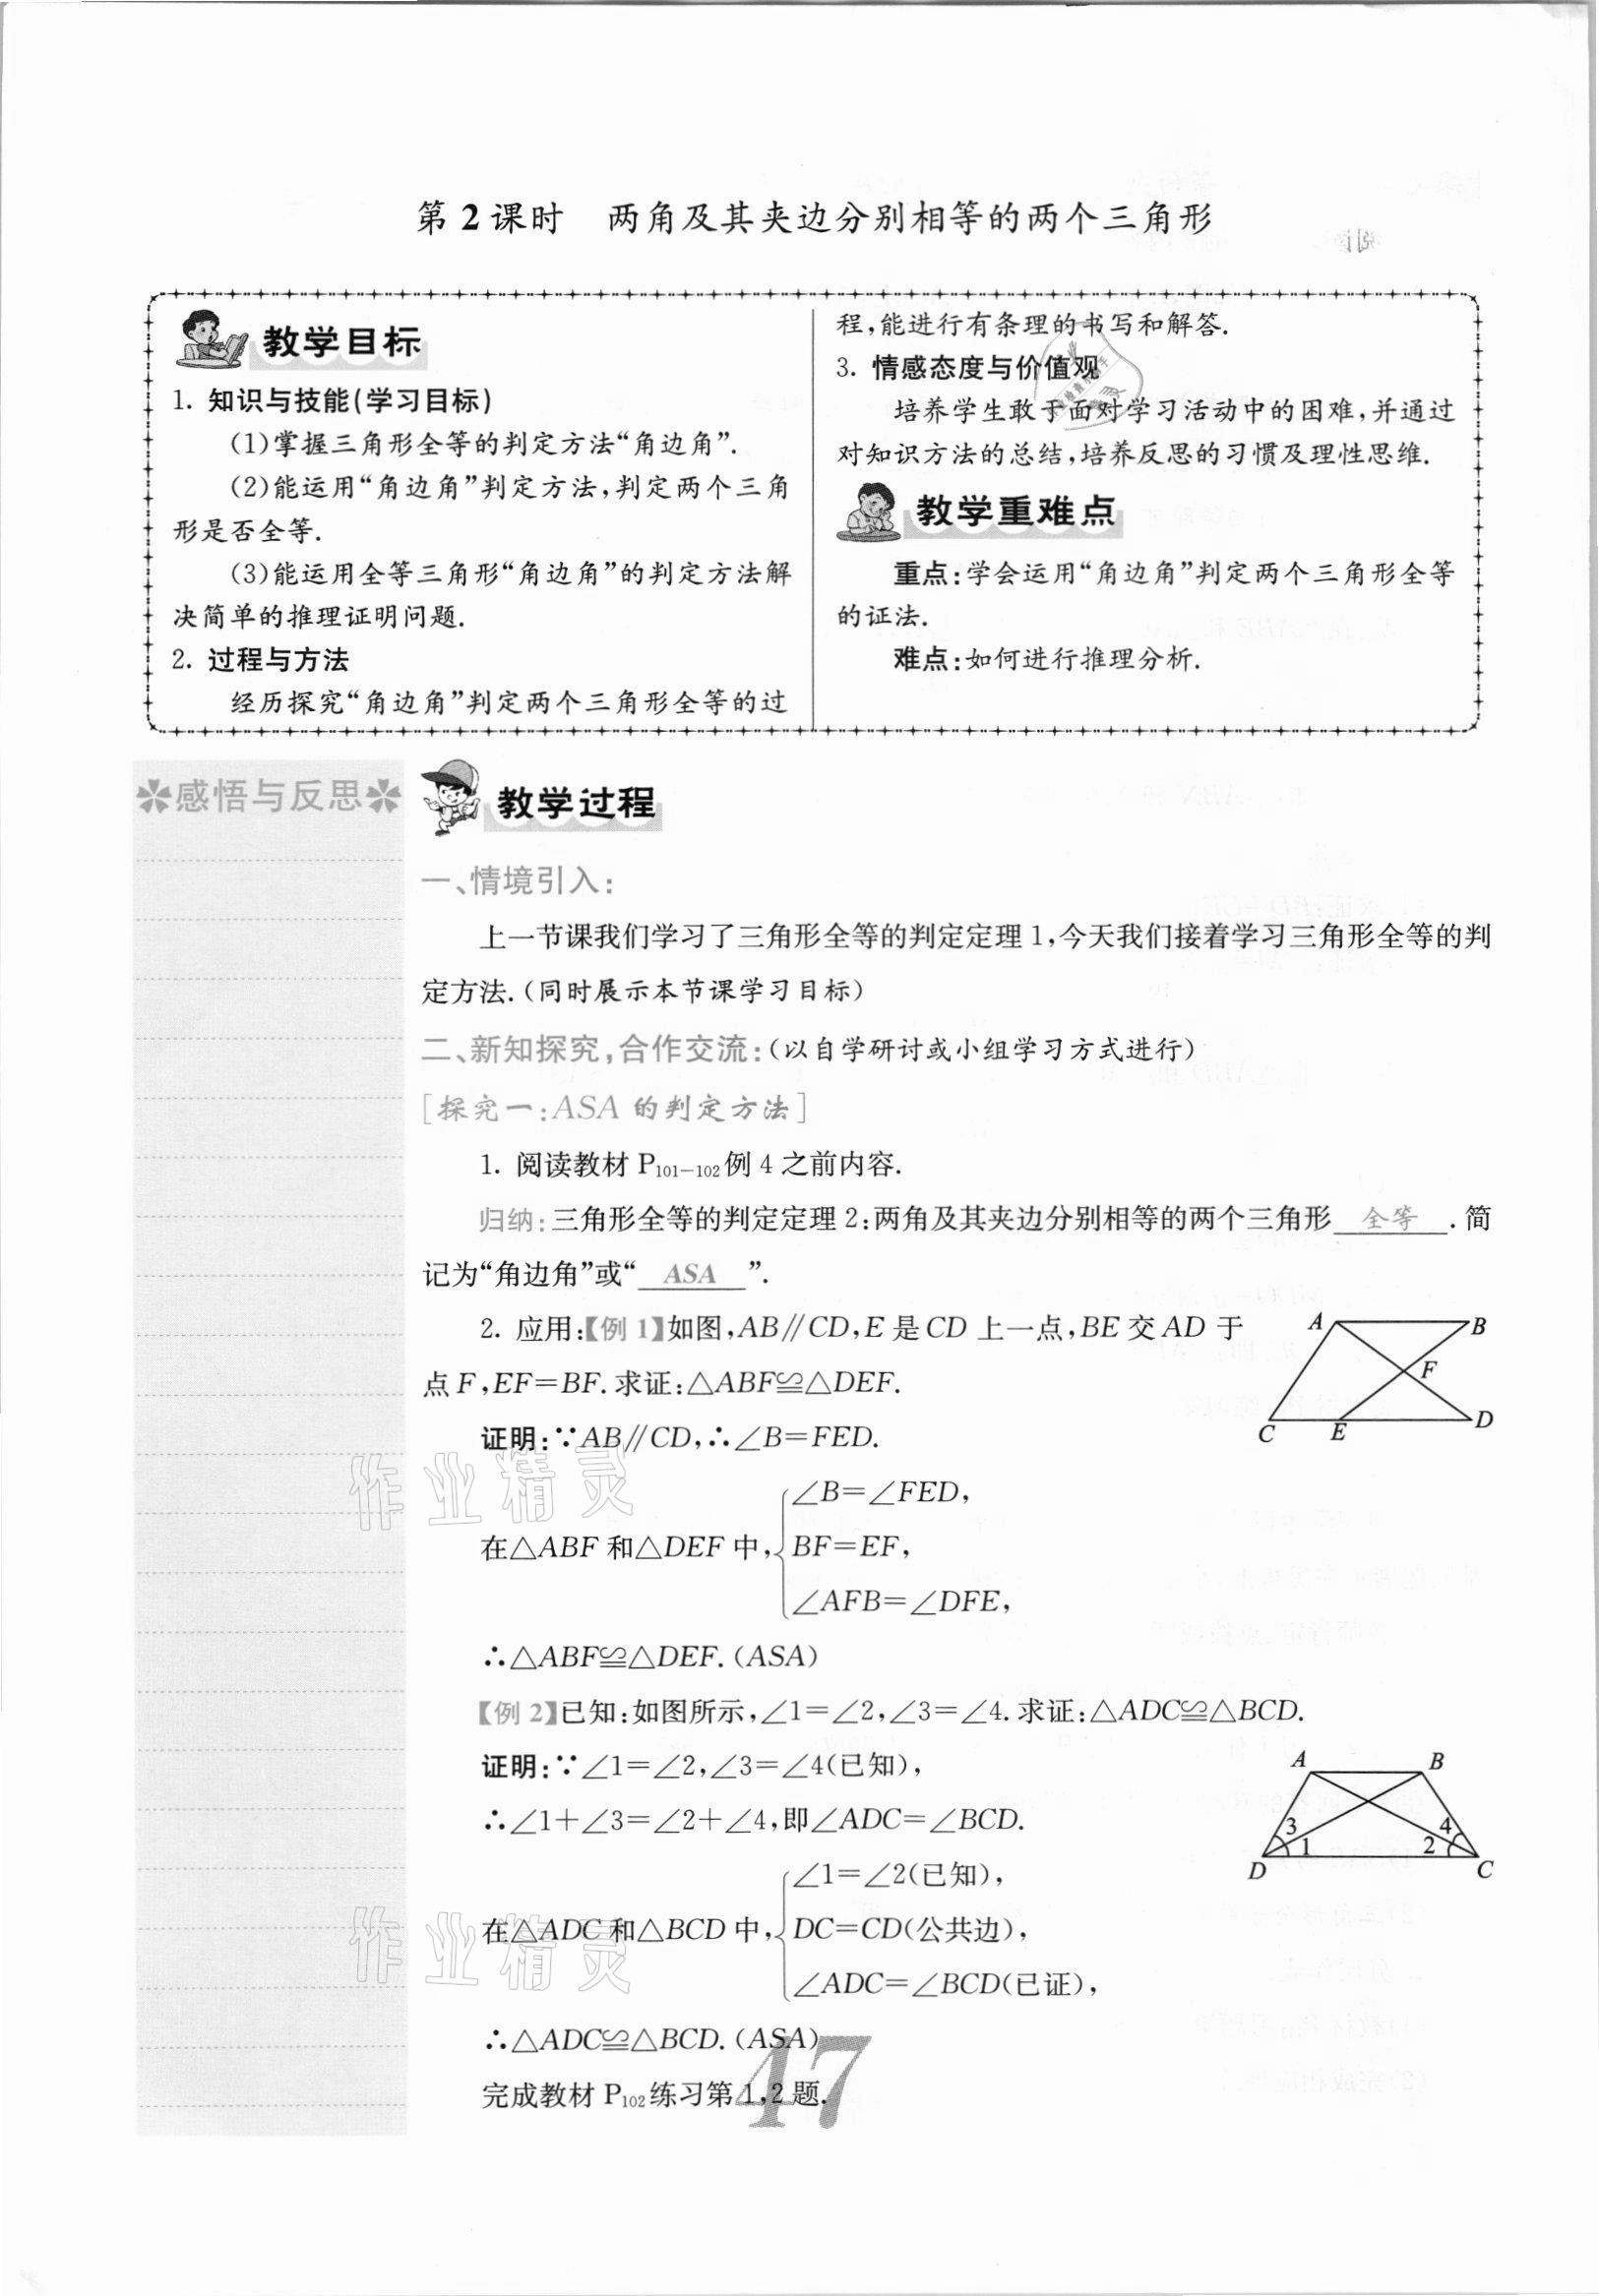 第2课时 两角及其夹边分别相等的两个三角形
教学目标
1. 知识与技能(学习目标)
(1)掌握三角形全等的判定方法“角边角”.
(2)能运用“角边角”判定方法,判定两个三角
形是否全等.
(3)能运用全等三角形“角边角”的判定方法解
决简单的推理证明问题.
2. 过程与方法
经历探究“角边角”判定两个三角形全等的过
程,能进行有条理的书写和解答.
3. 情感态度与价值观
培养学生敢于面对学习活动中的困难,并通过
对知识方法的总结,培养反思的习惯及理性思维.
教学重难点
重点:学会运用“角边角”判定两个三角形全等
的证法.
难点:如何进行推理分析.
感悟与反思
教学过程
一、情境引入:
上一节课我们学习了三角形全等的判定定理1,今天我们接着学习三角形全等的判
定方法.(同时展示本节课学习目标)
二、新知探究,合作交流:(以自学研讨或小组学习方式进行)
[探究一:ASA的判定方法]
1. 阅读教材P101-102例4之前内容.
归纳:三角形全等的判定定理2:两角及其夹边分别相等的两个三角形 全等 .简
记为“角边角”或“ ASA ”.
2. 应用:【例1】如图,AB∥CD,E是CD上一点,BE交AD于
点F,EF=BF.求证:△ABF≌△DEF.
A
B
F
C
E
D
证明:∵AB∥CD,∴∠B=FED.
∠B=∠FED,
在△ABF和△DEF中,
BF=EF,
∠AFB=∠DFE,
∴△ABF≌△DEF.(ASA)
【例2】已知:如图所示,∠1=∠2,∠3=∠4.求证:△ADC≌△BCD.
证明:∵∠1=∠2,∠3=∠4(已知),
∴∠1+∠3=∠2+∠4,即∠ADC=∠BCD.
A
B
3
4
1
2
D
C
∠1=∠2(已知),
在△ADC和△BCD中,
DC=CD(公共边),
∠ADC=∠BCD(已证),
∴△ADC≌△BCD.(ASA)
完成教材P102练习第1,2题.
47
作业精灵
作业精灵